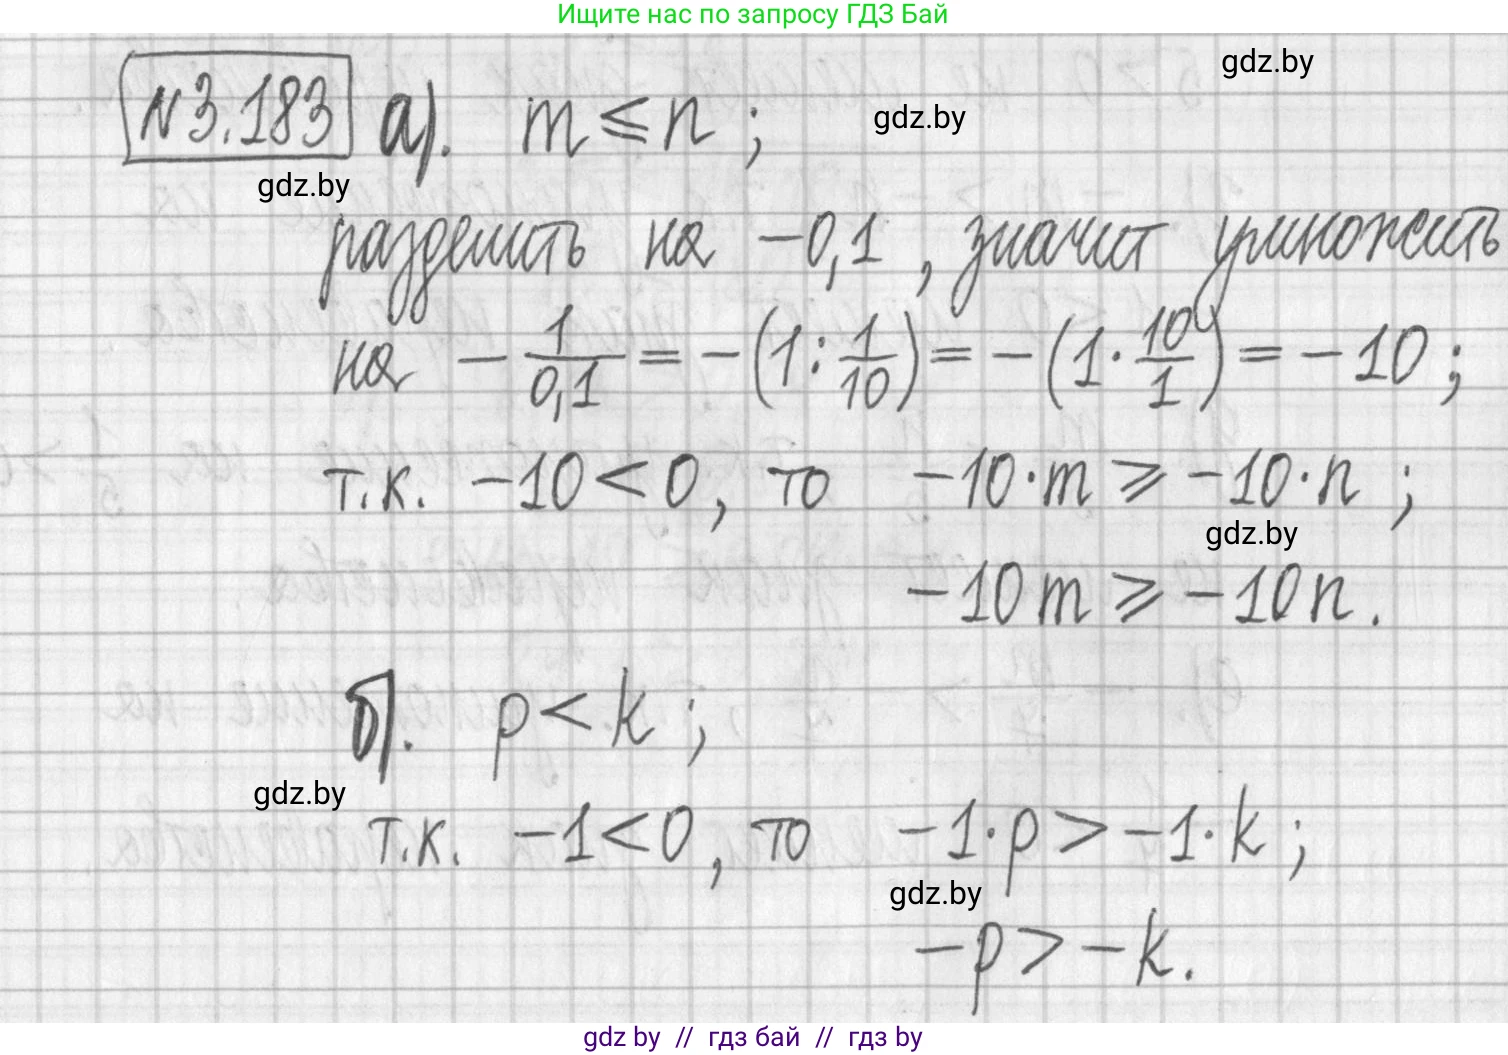 Ищите нас по запросу ГДЗ Бай
gdz.by
№3.183 а). m ⩽ n ;
gdz.by
gdz.by
разделить на −0,1 , значит умножить
на − 1/0,1 = −(1 : 1/10) = −(1 · 10/1) = −10 ;
т.к. −10 < 0, то −10·m ⩾ −10·n ;
gdz.by
−10m ⩾ −10n.
б). p < k ;
gdz.by
т.к. −1 < 0, то −1·p > −1·k ;
gdz.by
−p > −k.
gdz by // гдз бай // гдз by